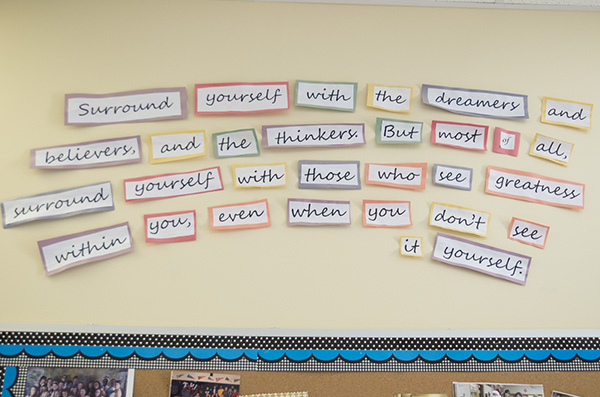 Surround yourself with the dreamers and
believers, and the thinkers. But most of all,
surround yourself with those who see greatness
within you, even when you don't see
it yourself.